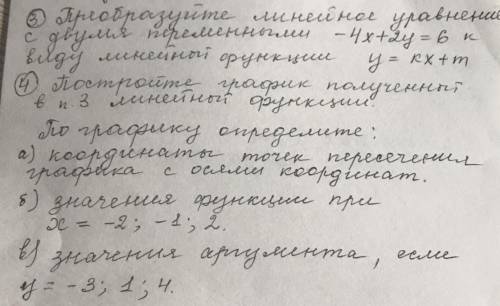 ③ Преобразуйте линейное уравнение
с двумя переменными -4x+2y=6 к
виду линейной функции y=kx+m
④ Постройте график полученный
в п.3 линейный функции.
По графику определите:
а) координаты точек пересечения
графика с осями координат.
б) значения функции при
x = -2; -1; 2.
в) значения аргумента, если
y = -3; 1; 4.